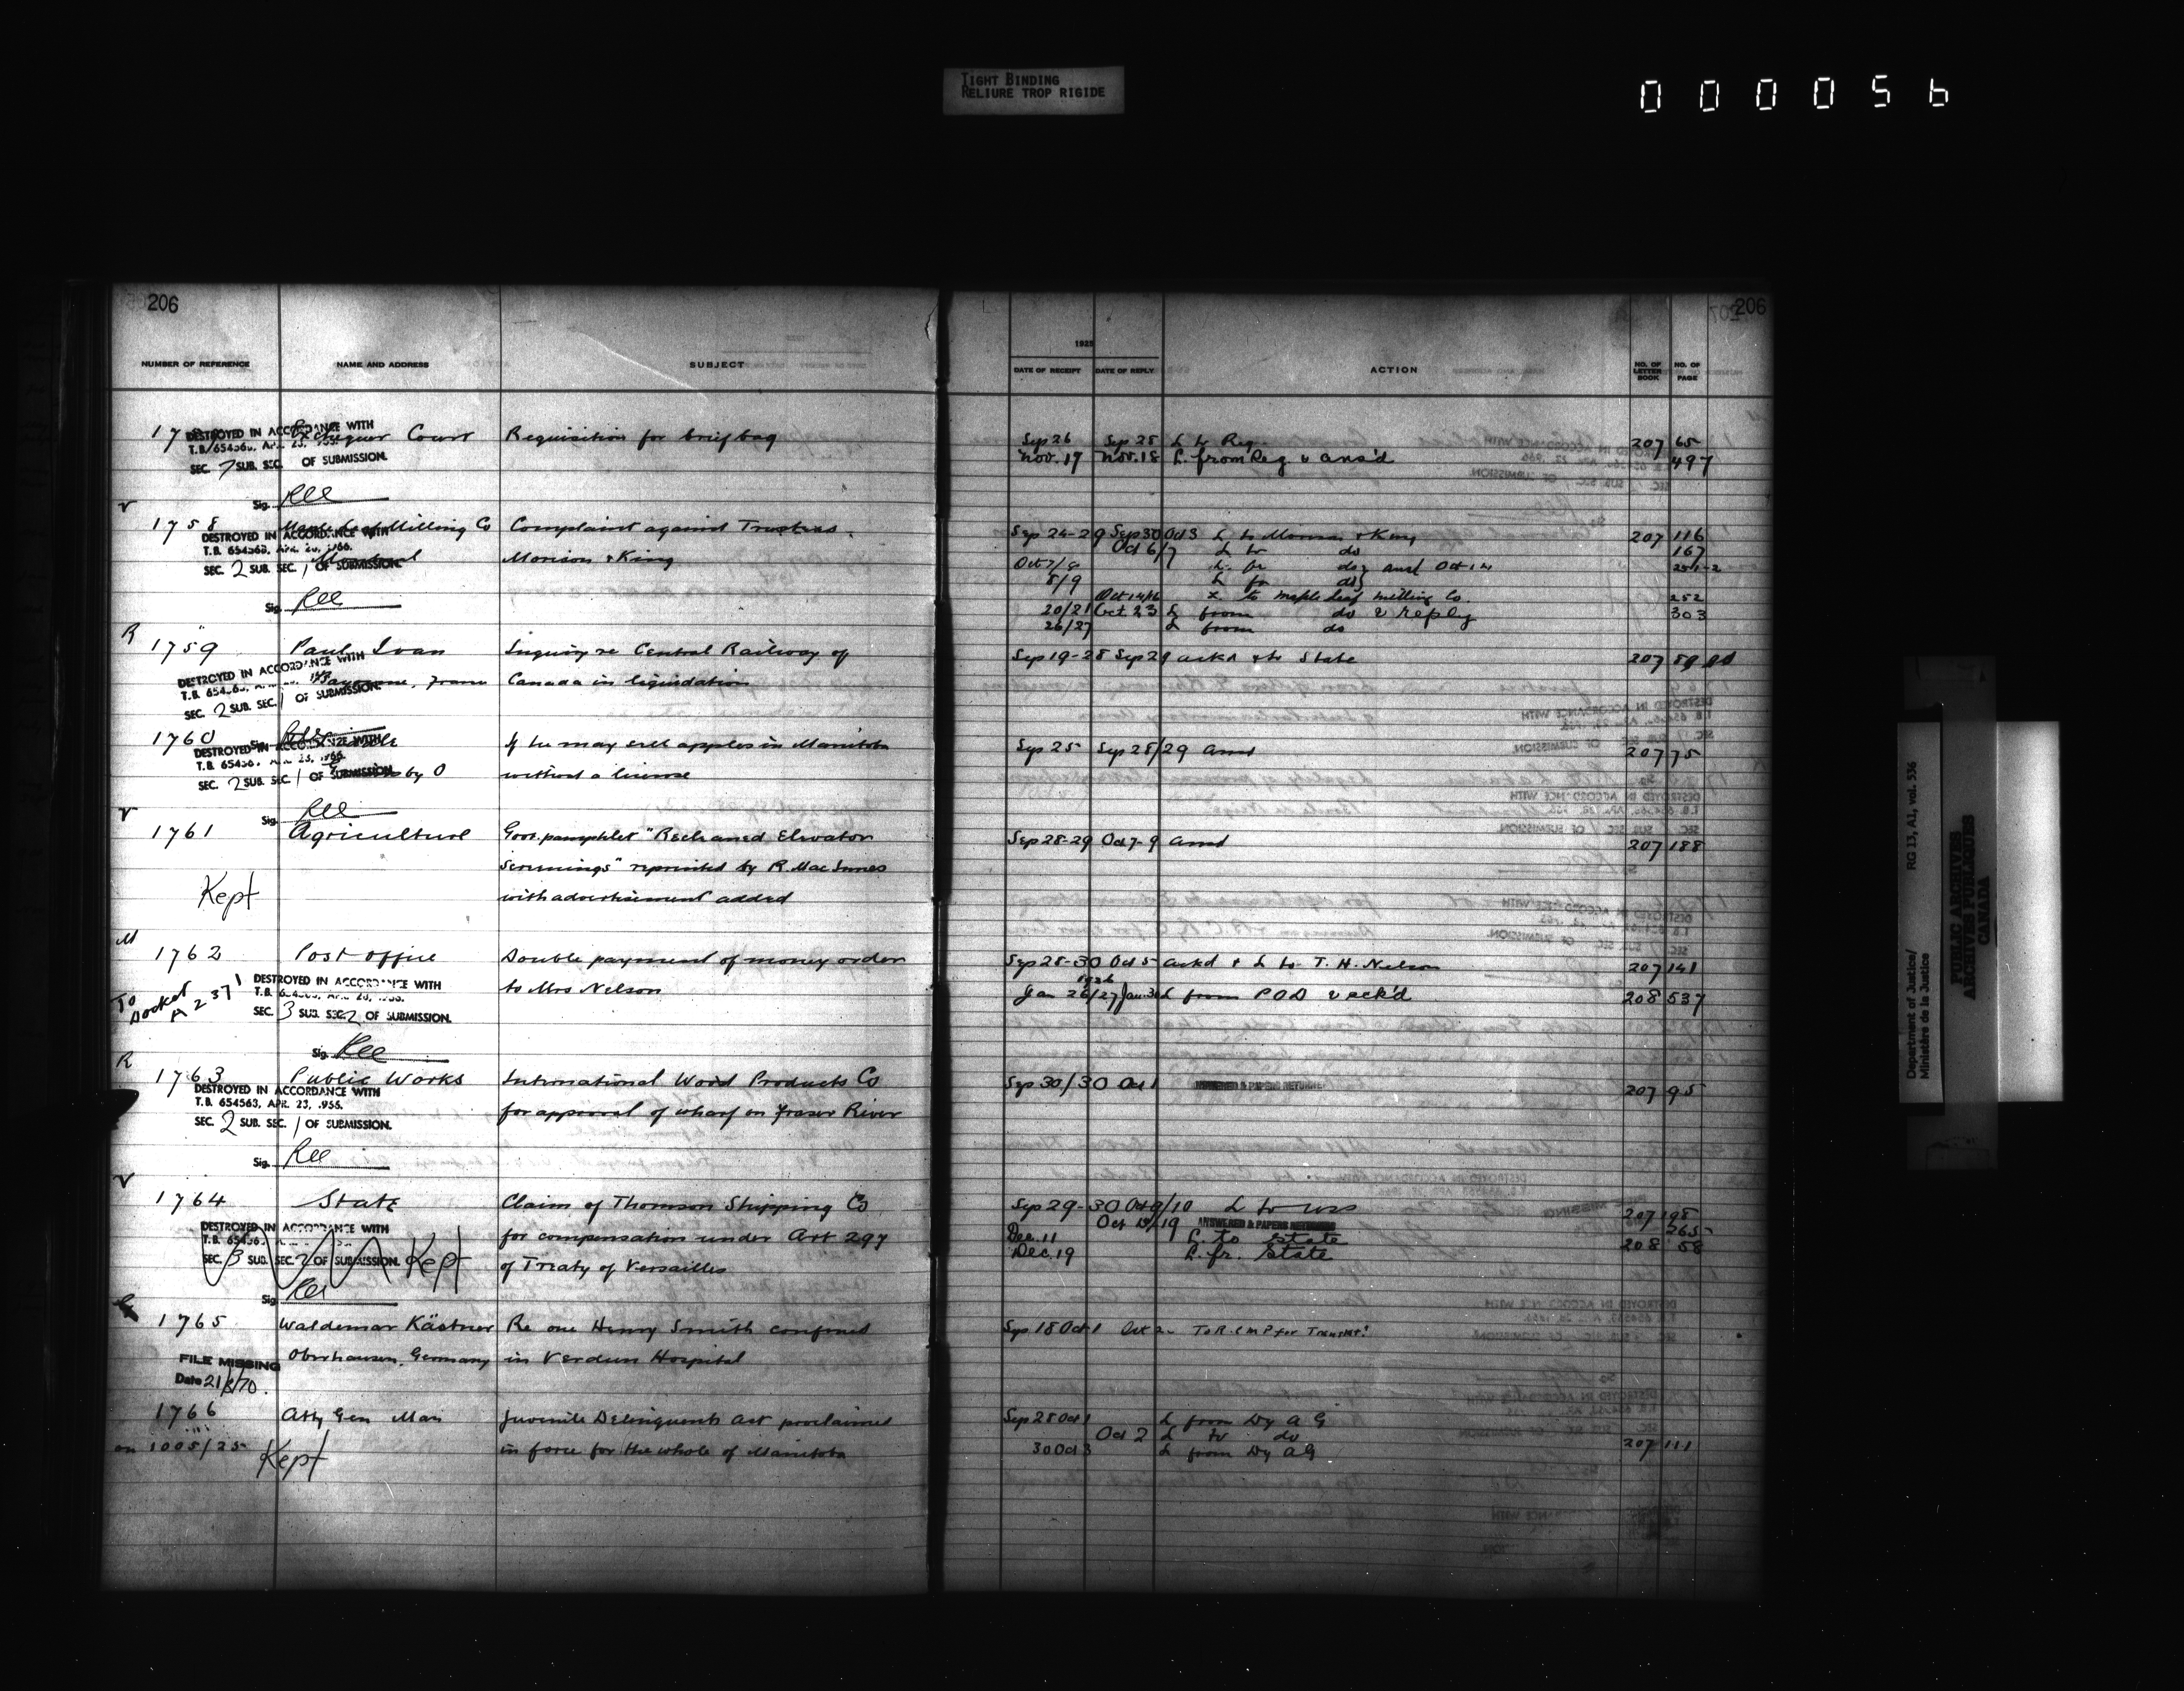 TIGHT BINDING
RELIURE TROP RIGIDE
000056
206
NUMBER OF REFERENCE NAME AND ADDRESS SUBJECT
Exchequer Court Requisition for brief bag
DESTROYED IN ACCORDANCE WITH
SEC. 7 SUB. SEC. OF SUBMISSION.
Sig.
1758 Maple Leaf Milling Co Complaint against Trustees.
DESTROYED IN ACCORDANCE WITH
T.B. 654563, APR. 23, 1966.
Montreal Morison & King
SEC. 2 SUB. SEC. 1 OF SUBMISSION.
Sig.
R
1759 Paul Ivan Inquiry re Central Railway of
DESTROYED IN ACCORDANCE WITH
Bayonne, France Canada in liquidation
SEC. 2 SUB. SEC. 1 OF SUBMISSION.
1760 If he may sell apples in Manitoba
DESTROYED IN ACCORDANCE WITH
by O without a license
SEC. 2 SUB. SEC. 1 OF SUBMISSION.
Sig.
1761 Agriculture Govt. pamphlet "Recleaned Elevator
Screenings" reprinted by R. MacInnes
Kept with advertisement added
M
1762 Post Office Double payment of money order
to Mrs Nelson
To Docket A 2371
DESTROYED IN ACCORDANCE WITH
SEC. 3 SUB. SEC. 2 OF SUBMISSION.
Sig.
R
1763 Public Works International Wood Products Co
DESTROYED IN ACCORDANCE WITH
T.B. 654563, APR. 23, 1966.
for approval of wharf on Fraser River
SEC. 2 SUB. SEC. 1 OF SUBMISSION.
Sig.
1764 State Claim of Thomson Shipping Co
DESTROYED IN ACCORDANCE WITH
for compensation under Art 297
SEC. 3 SUB. SEC. 2 OF SUBMISSION. Kept
of Treaty of Versailles
Sig.
1765 Waldemar Kästner Re one Henry Smith confined
Oberhausen, Germany in Verdun Hospital
FILE MISSING
Date 21/8/70.
1766 Atty Gen Man Juvenile Delinquents Act proclaimed
on 1005/25 in force for the whole of Manitoba
Kept
206
1925
DATE OF RECEIPT DATE OF REPLY ACTION NO. OF LETTER BOOK NO. OF PAGE
Sep 26 Sep 25 L to Reg. 207 65
Nov. 17 Nov. 18 L. from Reg & ans'd 497
Sep 24-29 Sep 30 Oct 3 L to Morison & King 207 116
Oct 6/7 L to do 167
Oct 7/8 L. fr do } ansd Oct 14 251-2
8/9 L fr do }
Oct 14/16 L. to Maple Leaf Milling Co. 252
20/21 Oct. 23 L from do & reply 303
26/27 L from do
Sep 19-28 Sep 29 ackd & to State 207 89
Sep 25 Sep 28/29 ansd 207 75
Sep 28-29 Oct 7-9 ansd 207 188
Sep 28-30 Oct 5 ackd & L to T. H. Nelson 207 141
1926
Jan 26/27 Jan. 30 L from P.O.D & ack'd 208 537
Sep 30/30 Oct 1 ANSWERED & PAPERS RETURNED 207 95
Sep 29-30 Oct 9/10 L to uss 207 198
Oct 19 ANSWERED & PAPERS RETURNED 265
Dec. 11 L. to State 208 58
Dec. 19 L. fr. State
Sep 18 Oct 1 Oct 2 To R.C.M.P for Transmt.
Sep 28 Oct 1 L from Dy A G
Oct 2 L to do 207 111
30 Oct 3 L from Dy A G
Department of Justice/ RG 13, A1, vol. 536
Ministère de la Justice
PUBLIC ARCHIVES
ARCHIVES PUBLIQUES
CANADA